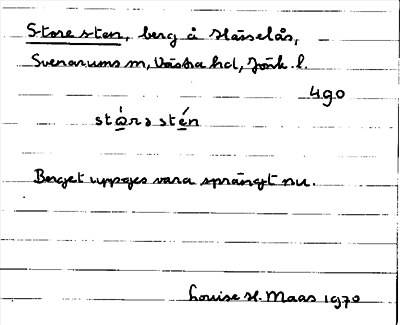 Store sten, berg å Hässelås,
Svenarums sn, Västra hd, Jönk. l.
4g0
stǻrə stén
Berget uppges vara sprängt nu.
Louise H. Maas 1970